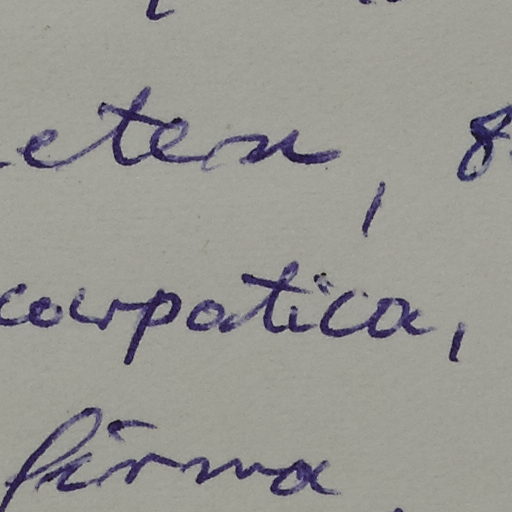 eten, 8
carpatica,
firma